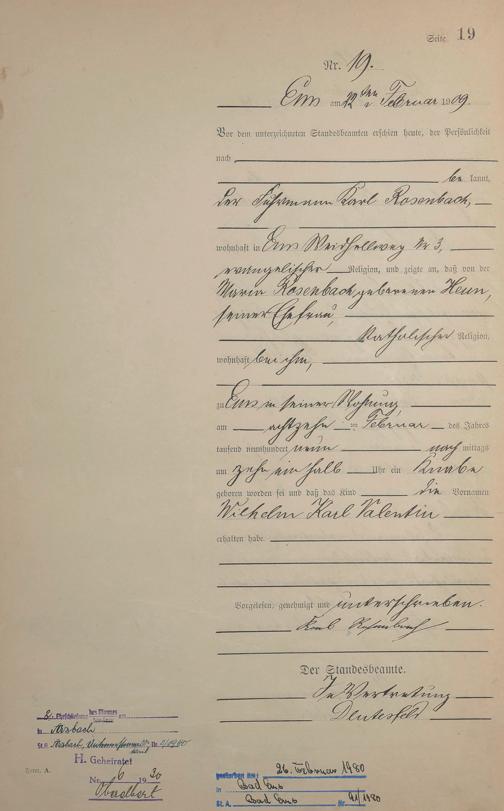 Seite 19
Nr. 19.
Ems am 22ten Februar 1909.
Vor dem unterzeichneten Standesbeamten erschien heute, der Persönlichkeit
nach
be kannt,
der Fuhrmann Karl Rosenbach,
wohnhaft in Ems Weidhellweg Nr 3,
evangelischer Religion, und zeigte an, daß von der
Maria Rosenbach, geborenen Heun,
seiner Ehefrau,
katholischer Religion,
wohnhaft bei ihm,
zu Ems in seiner Wohnung,
am achtzehn ten Februar des Jahres
tausend neunhundert neun nach mittags
um zehn ein halb Uhr ein Knabe
geboren worden sei und daß das Kind die Vornamen
Wilhelm Karl Valentin
erhalten habe.
Vorgelesen, genehmigt und unterschrieben.
Karl Rosenbach
Der Standesbeamte.
In Vertretung
des Mannes
Eheschließung am
in
St.A.
H. Geheiratet
Nr. 6 1930
Form. A.
gestorben am: 26. Februar 1980
in Bad Ems
St. A. Bad Ems Nr. 41/1980